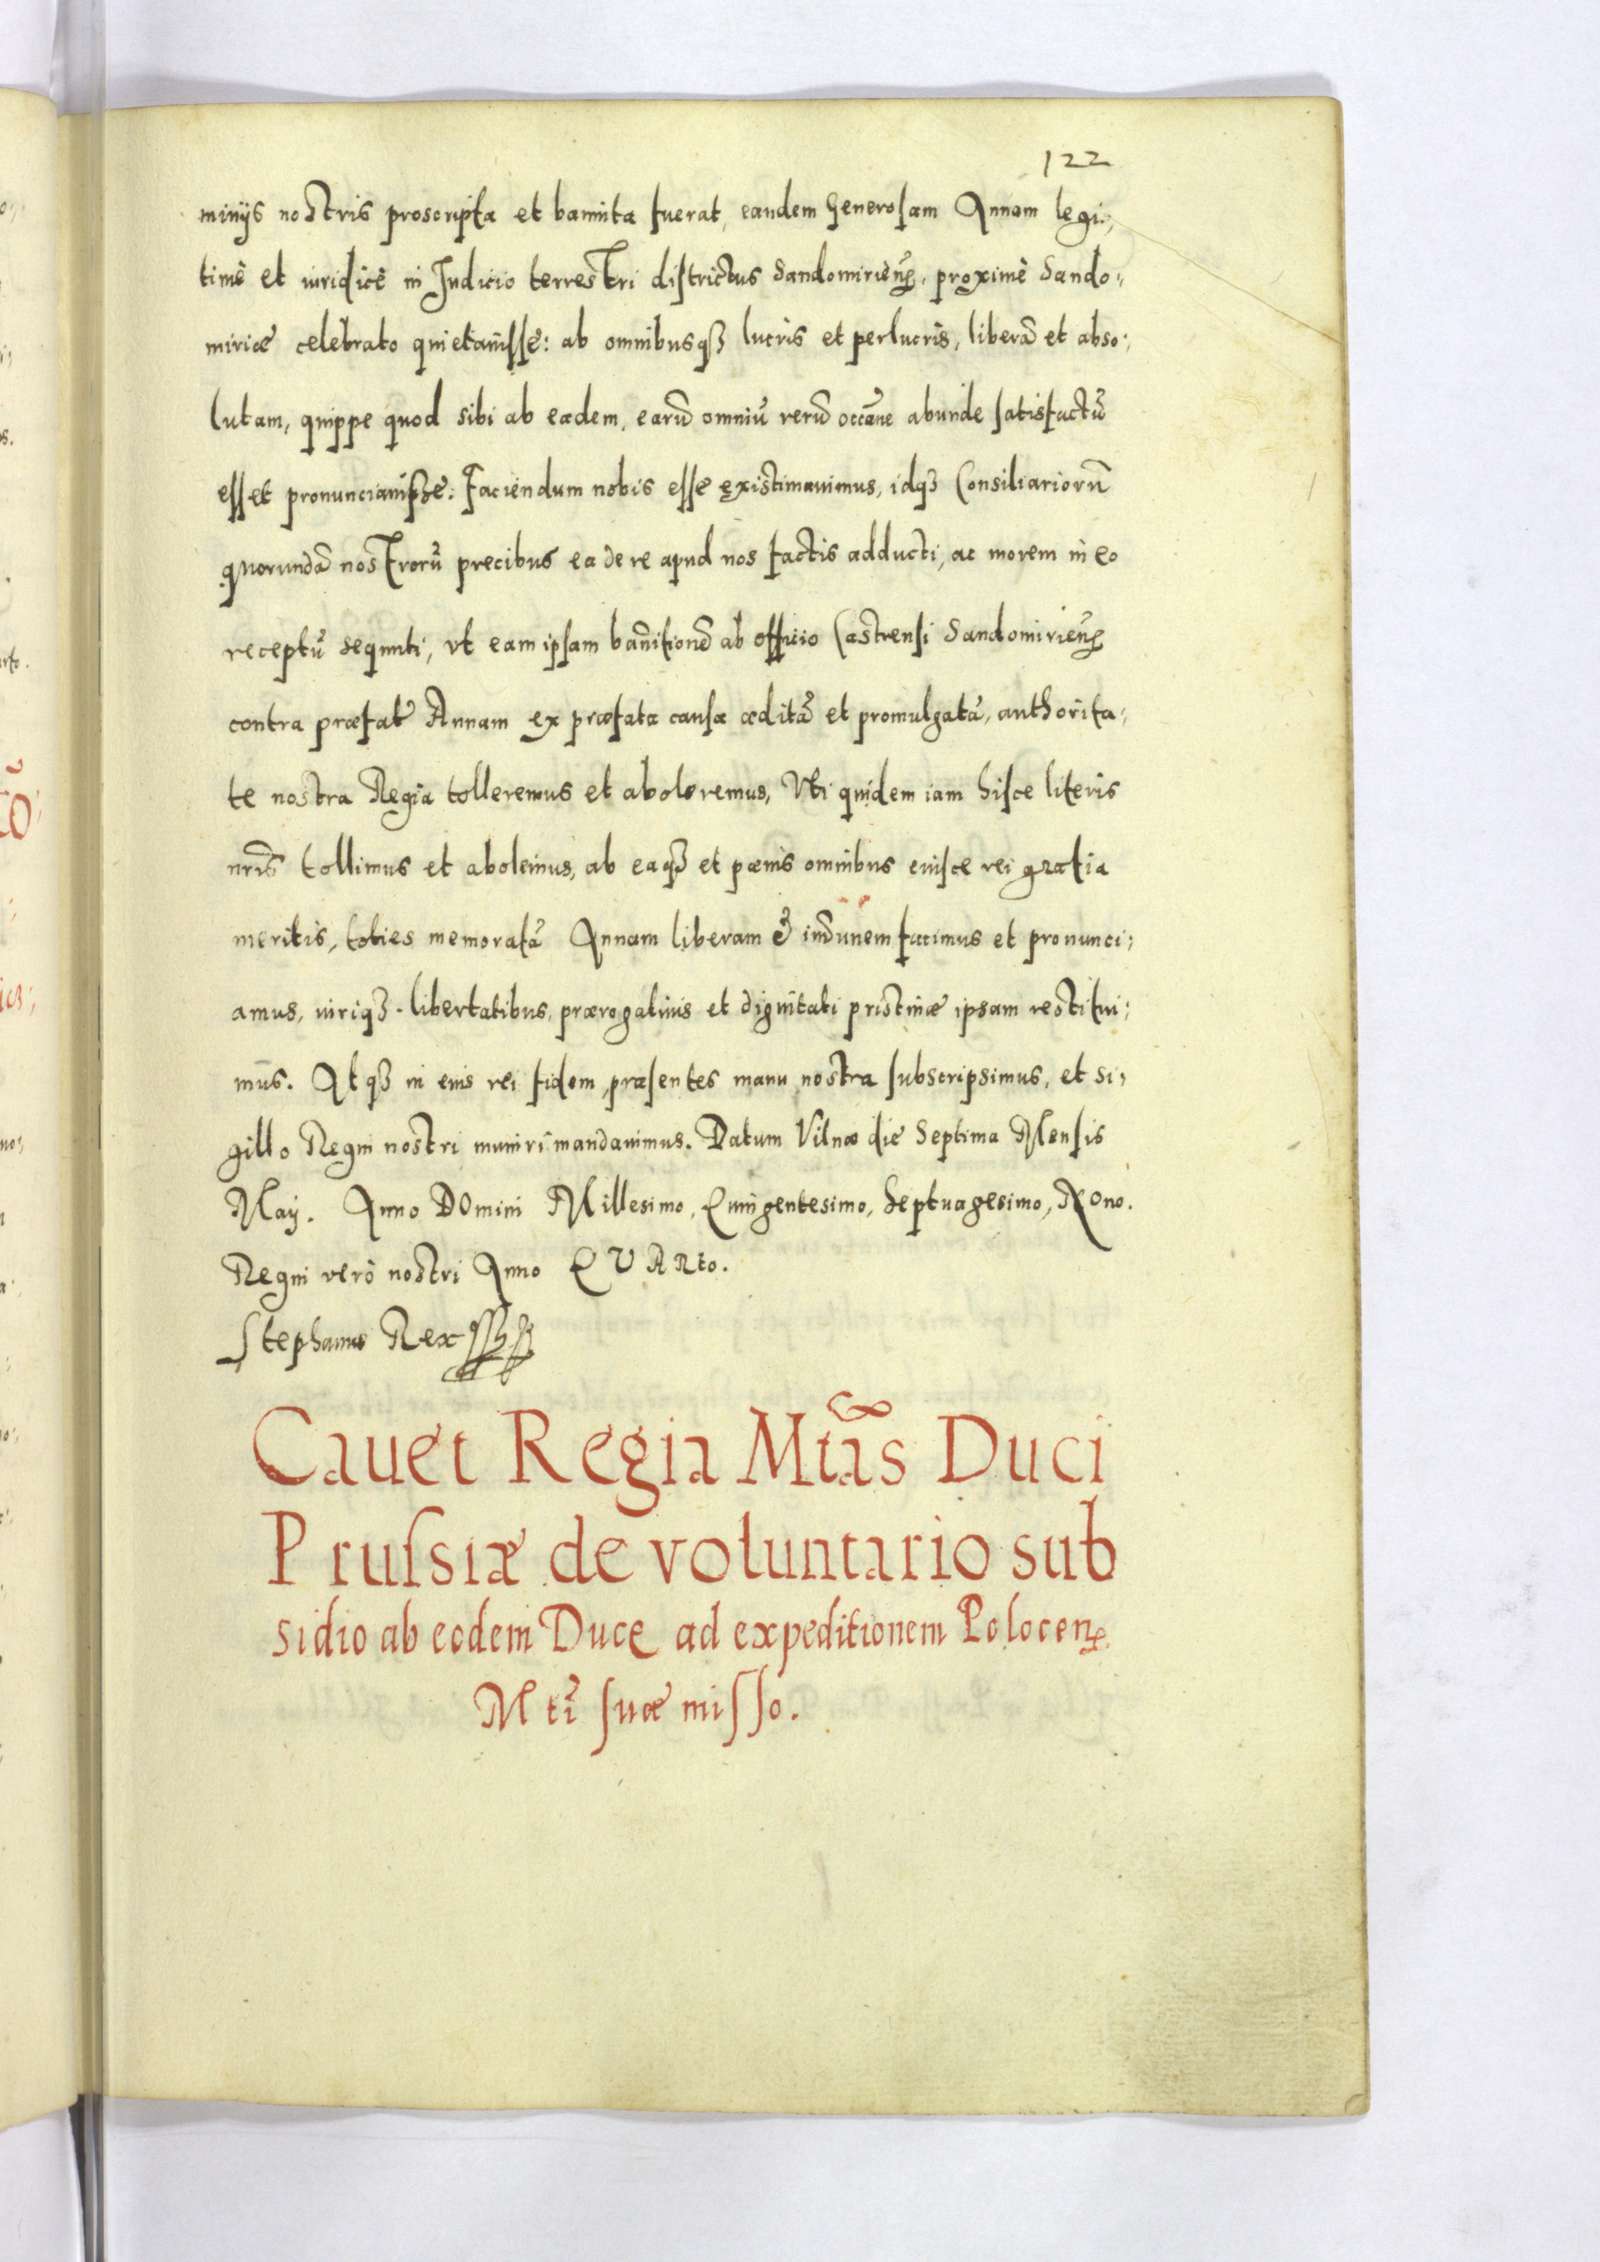 122
minijs nostris proscripta et bannita fuerat, eandem Generosam Annam legi,
timè et iuridicè in Iudicio terrestri districtus Sandomirieñ. proximè Sando,
miriæ celebrato quietauisse: ab omnibusq3 lucris et perlucris, liberã et abso,
lutam, quippe quod sibi ab eadem, earũ omniũ rerũ occõne abunde satisfactũ
esset pronunciauisse. Faciendum nobis esse existimauimus, idq3 Consiliariorũ
quorundã nostrorũ precibus ea de re apud nos factis adducti, ac morem in eo
receptũ sequuti, vt eam ipsam bañitionẽ ab officio Castrensi Sandomirieñ
contra præfatã Annam ex præfata causa æditã et promulgatã, authorita,
te nostra Regia tolleremus et aboleremus, Vti quidem iam hisce literis
nr̃is tollimus et abolemus, ab eaq3 et pænis omnibus eiusce rei gratia
meritis, toties memoratã Annam liberam & im̃unem facimus et pronunci,
amus, iuriq3. libertatibus, prærogatiuis et dignitati pristinæ ipsam restitui,
mus. Atq3 in eius rei fidem, præsentes manu nostra subscripsimus, et si,
gillo Regni nostri muniri mandauimus. Datum Vilnæ die Septima Mensis
Maij. Anno DOmini Millesimo, Quingentesimo, Septuagesimo, Nono.
Regni verò nostri Anno QVARto.
Stephanus Rex
Cauet Regia Mtãs Duci
Prussiæ de voluntario sub
sidio ab eodem Duce ad expeditionem Poloceñ.
Mti suæ misso.